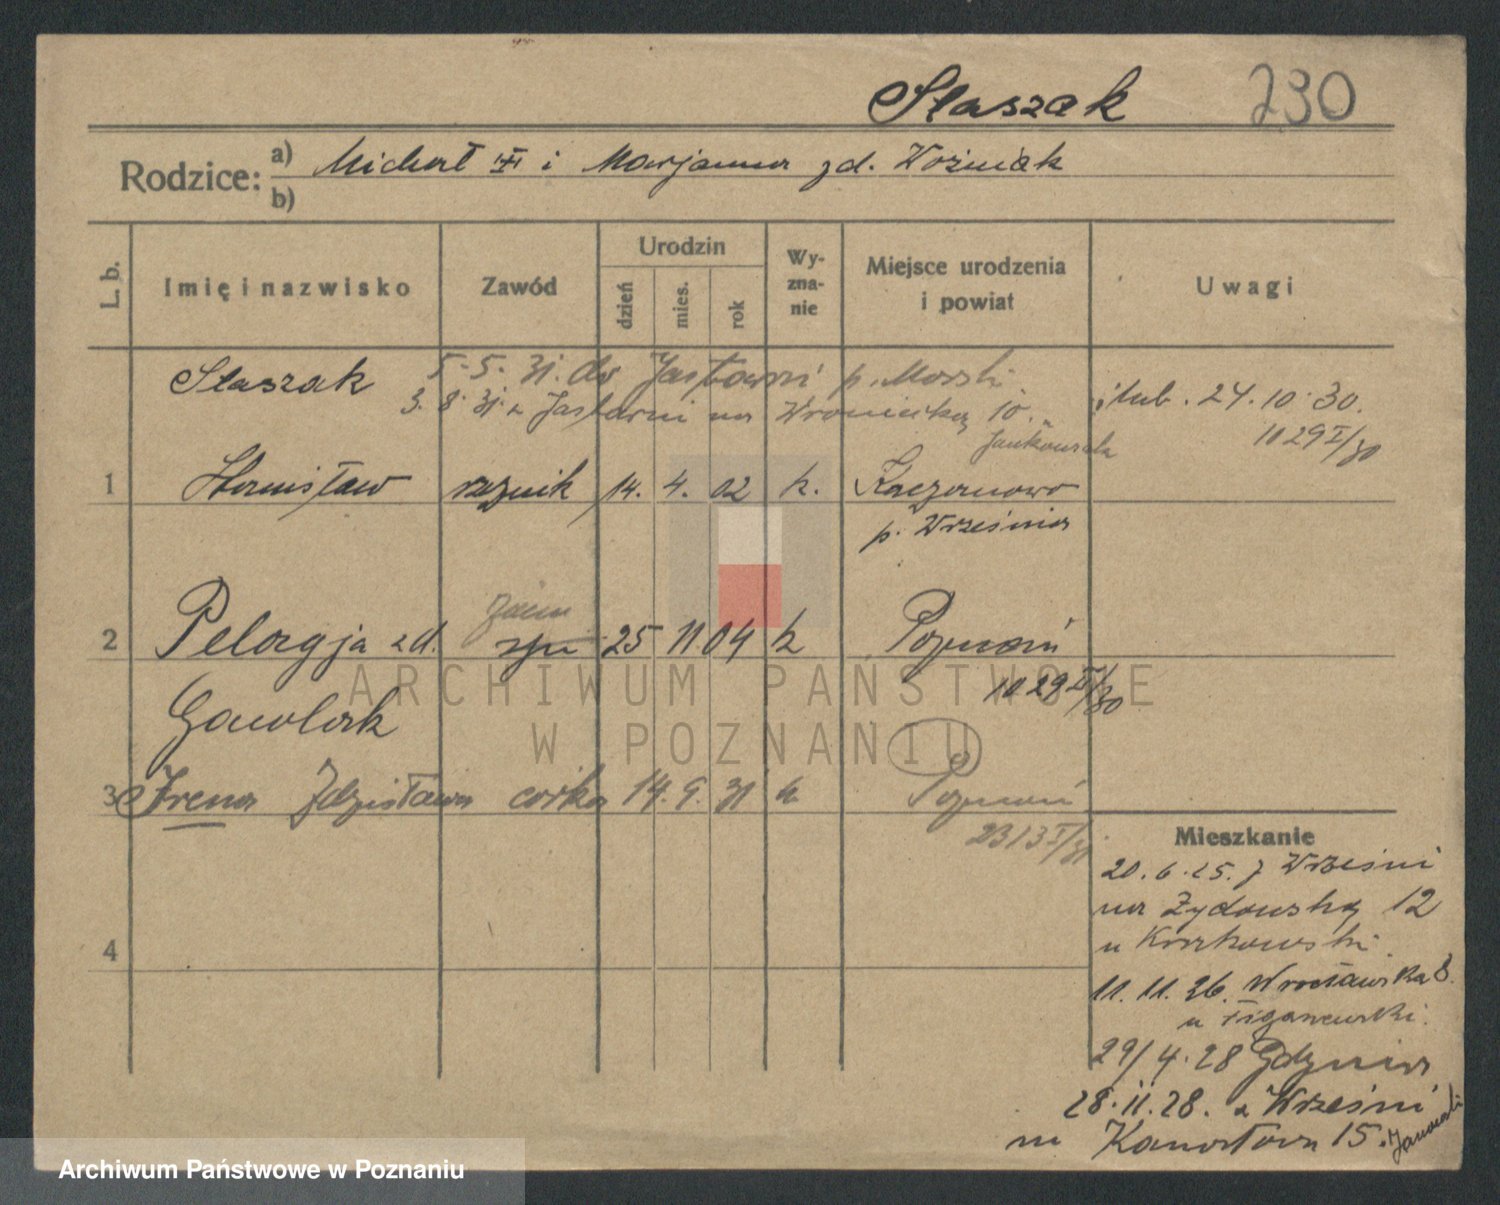 Staszak 290
Rodzice: a) Michał i Marjanna zd. Woźniak
b)
L. b. Imię i nazwisko Zawód Urodzin dzień mies. rok Wy-zna-nie Miejsce urodzenia i powiat Uwagi
Staszak 5.5.31. do Jastarni p. Morski
3. 8. 31. z Jastarni na Wroniecką 10.
ślub. 24. 10. 30.
Jankowska
1029 I/30
1 Stanisław rzeźnik 14. 4. 02 k. Kaczanowo
p. Września
2 Pelagja zd. żona 25 11. 04 k Poznań
1029 II/30
Gawlak
3 Irena Zdzisława córka 14. 9. 31 k Poznań
2313 I/31
Mieszkanie
20. 6. 25. z Wrześni
na Żydowską 12
u
4
11. 11. 26. Wrocławska 8.
u
29/4. 28 Gdynia
28. 11. 28. z Wrześni
na 15.
ARCHIWUM PAŃSTWOWE
W POZNANIU
Archiwum Państwowe w Poznaniu